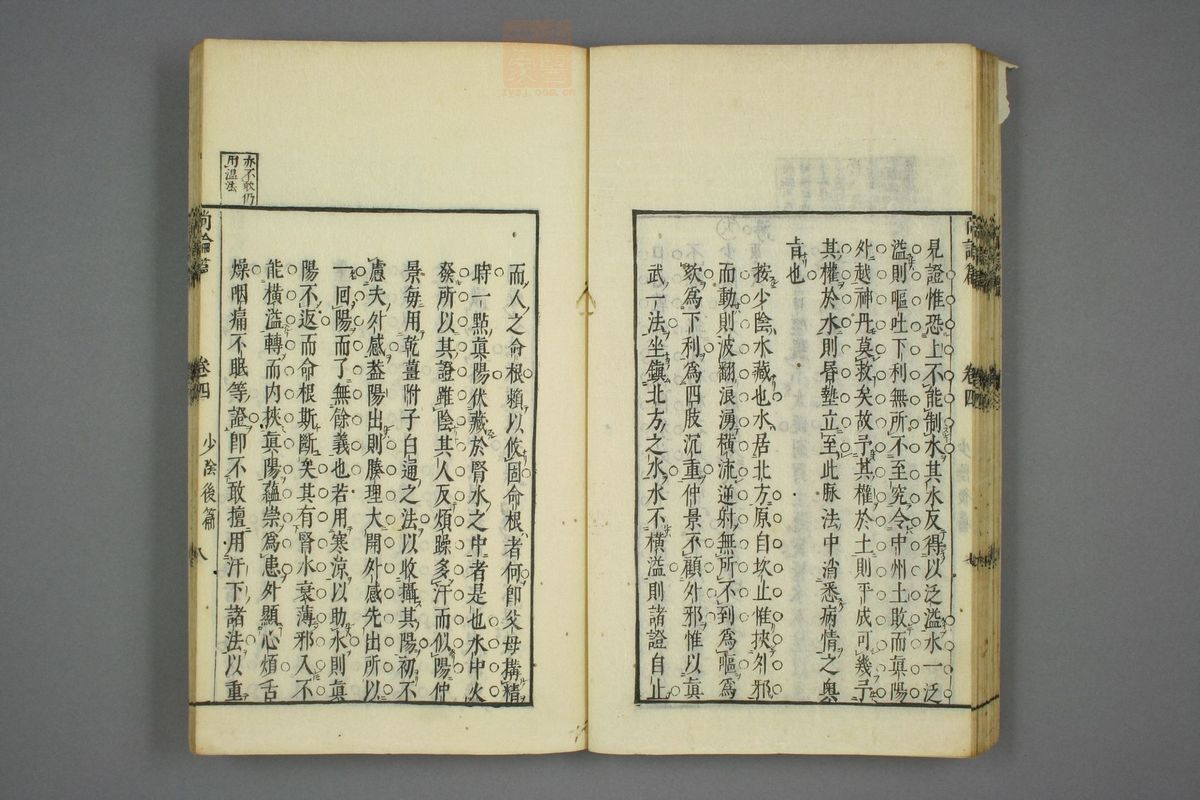 見證惟恐上不能制水其水反得以泛溢水一泛
溢則嘔吐下利無所不至究令中州土敗而眞陽
外越神丹莫救矣故予其權於土則平成可幾予
其權於水則昏墊立至此脉法中消悉病情之奥
旨也
按少陰水藏也水居北方原自坎止惟挾外邪
而動則波翻浪湧橫流逆射無所不到爲嘔爲
欬爲下利爲四肢沉重仲景不顧外邪惟以眞
武一法坐鎮北方之水水不橫溢則諸證自止
尚論篇 卷四 少陰後篇 七
而人之命根賴以攸固命根者何卽父母搆精
時一點眞陽伏藏於腎水之中者是也水中火
發所以其證雖陰其人反煩躁多汗而似陽仲
景每用乾薑附子白通之法以收攝其陽初不
慮夫外感葢陽出則腠理大開外感先出所以
一回陽而了無餘義也若用寒涼以助水則眞
陽不返而命根斯斷矣其有腎水衰薄邪入不
能橫溢轉而內挾眞陽蘊崇爲患外顯心煩舌
燥咽痛不眠等證卽不敢擅用汗下諸法以重
亦不敢仍
用溫法
尚論篇 卷四 少陰後篇 八